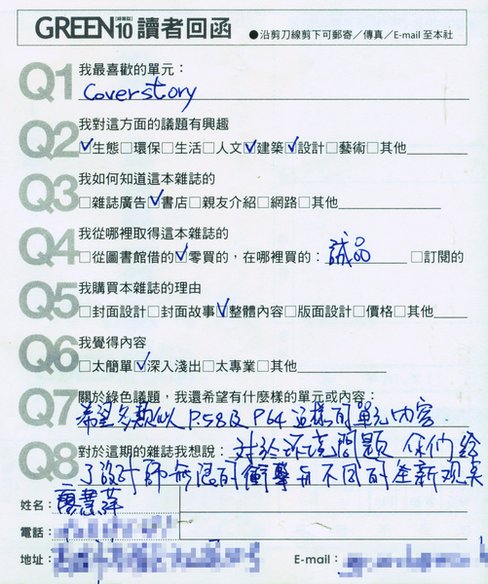 GREEN 10 讀者回函 ●沿剪刀線剪下可郵寄/傳真/E-mail 至本社
Q1 我最喜歡的單元：
Coverstory
Q2 我對這方面的議題有興趣
☑生態□環保□生活□人文☑建築☑設計□藝術□其他
Q3 我如何知道這本雜誌的
□雜誌廣告☑書店□親友介紹□網路□其他
Q4 我從哪裡取得這本雜誌的
□從圖書館借的☑零買的，在哪裡買的：誠品 □訂閱的
Q5 我購買本雜誌的理由
□封面設計□封面故事☑整體內容□版面設計□價格□其他
Q6 我覺得內容
□太簡單☑深入淺出□太專業□其他
Q7 關於綠色議題，我還希望有什麼樣的單元或內容：
希望多類似 P.58及 P64 這樣的單元內容
Q8 對於這期的雜誌我想說：對於环境問題 你們給
了設計師無限的衝擊與不同的全新观点
姓名：廖慧萍
電話：
地址： E-mail：